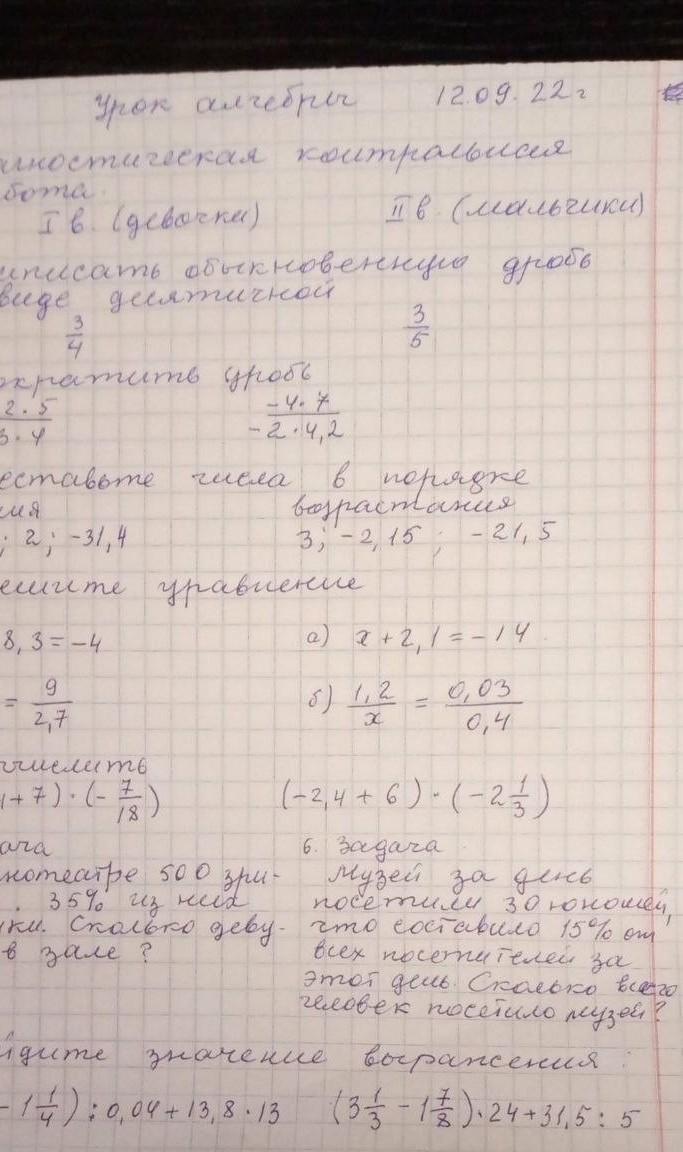 Урок алгебры 12.09.22г
агностическая контрольная
бота.
I в. (девочки) II в. (мальчики)
писать обыкновенную дробь
виде десятичной
3/4 3/5
ократить дробь
2·5/3·4 -4·7/-2·4,2
ставьте числа в порядке
ния возрастания
; 2; -31,4 3; -2,15; -21,5
ешите уравнение
8,3=-4 а) x+2,1=-14
= 9/2,7 б) 1,2/x = 0,03/0,4
числить
+7)·(-7/18) (-2,4+6)·(-2 1/3)
ача 6. Задача
нотеатре 500 зри- Музей за день
. 35% из них посетили 30 юношей,
ки. Сколько деву- что составило 15% от
в зале? всех посетителей за
этот день. Сколько всего
человек посетило музей?
йдите значение выражения:
-1 1/4):0,04+13,8·13 (3 1/3 -1 7/8)·24+31,5:5